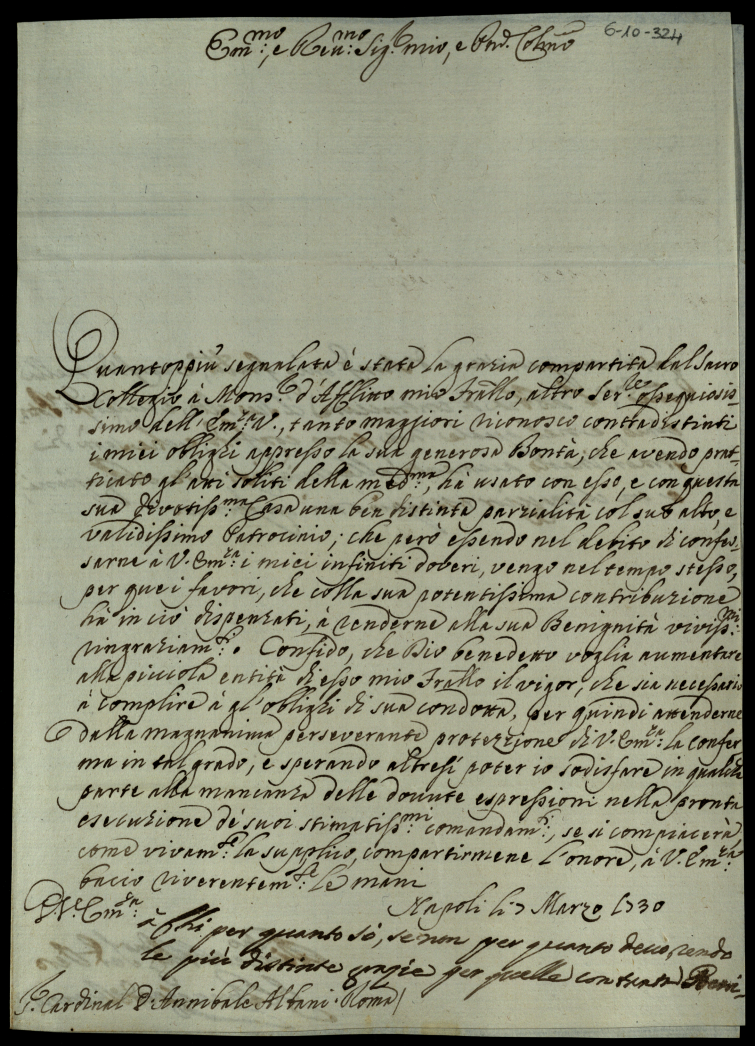 6-10-324
Em:mo, e Reu:mo Sig.r mio, e Pnd. Colmo
Quantoppiù segnalata è stata la grazia compartita dal Sacro
Collegio à Mons.r d'Afflitto mio Frallo, altro Ser.le ossequiosis-
simo dell'Em:za V., tanto maggiori riconosco contradistinti
i miei oblighi appresso la sua generosa Bontà; che avendo prat-
ticato gl'atti soliti della med:ma, hà usato con esso, e con questa
sua devotiss:ma Casa una ben distinta parzialità col suo alto, e
validissimo Patrocinio; che però essendo nel debito di confes-
sarne à V. Em:za i miei infiniti doveri, vengo nel tempo stesso,
per quei favori, che colla sua potentissima contribuzione
hà in ciò dispenzati, à renderne alla sua Benignità viviss:mi
ringraziam:ti. Confido, che Dio benedetto voglia aumentare
alla picciola entità di esso mio Frallo il vigor, che sia necessario
à complire à gl'oblighi di sua condotta, per quindi attenderne
dalla magnanima perseverante protezzione di V. Em:za la confer
ma in tal grado, e sperando altresì poter io sodisfare in qualche
parte alla mancanza delle dovute espressioni nella pronta
esecuzione de' suoi stimatiss:mi comandam:ti, se si compiacerà,
come vivam:te la supplico, compartirmene l'onore, à V. Em:za
bacio riverentem:te le mani
Napoli li 7 Marzo 1730
D. V. Em:za
à chi per quanto sò, se non per quanto devo, rendo
le più distinte grazie per quelle con
S.r Cardinal D. Annibale Albani. Roma